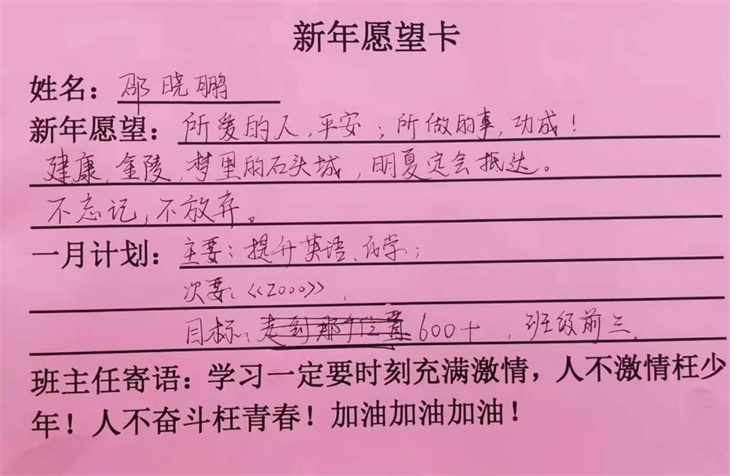 新年愿望卡
姓名：邵晓鹏
新年愿望：所爱的人，平安；所做的事，功成！
建康，金陵，梦里的石头城，明夏定会抵达。
不忘记，不放弃。
一月计划：主要：提升英语、化学；
次要：《2000》，
目标：600+，班级前三。
班主任寄语：学习一定要时刻充满激情，人不激情枉少
年！人不奋斗枉青春！加油加油加油！